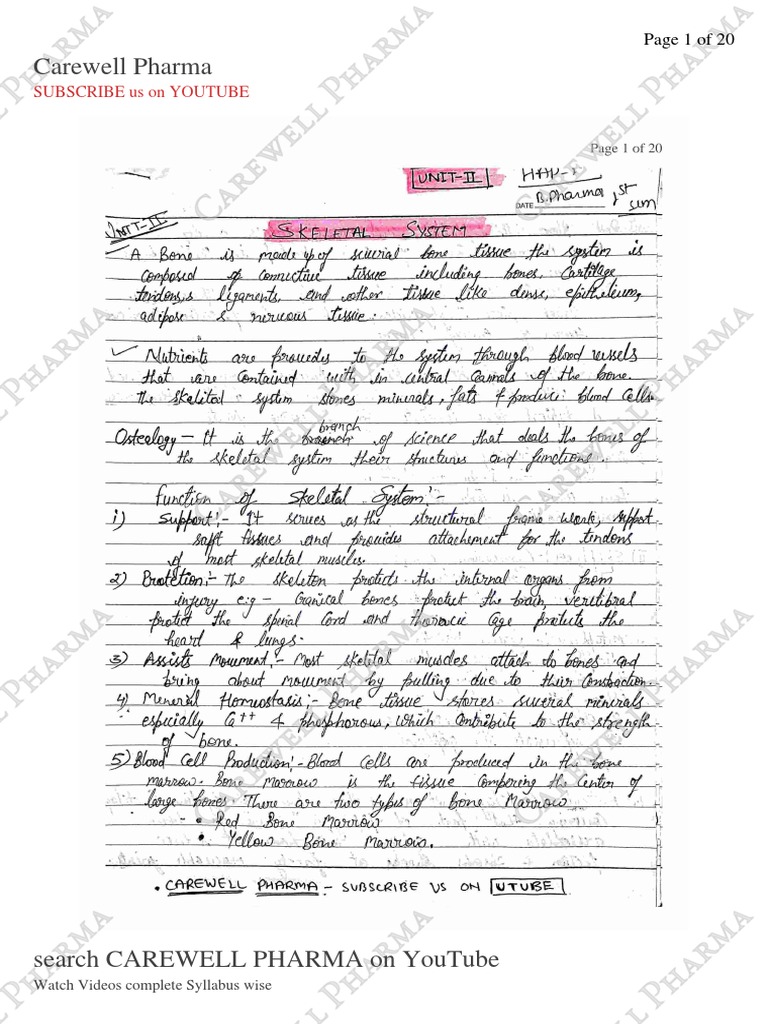 Page 1 of 20
Carewell Pharma
SUBSCRIBE us on YOUTUBE
Page 1 of 20
UNIT-II
HAP-I
DATE B.Pharma 1st
sem
UNIT-II
SKELETAL SYSTEM
A Bone is made up of several bone tissue the system is
composed of connective tissue including bones, Cartilage
tendons, ligaments, and other tissue like dense, epithelium,
adipose & nervous tissue.
Nutrients are provedes to the system through blood vessels
that are contained with in central cannals of the bone.
The skalital system stones minerals, fats & produce blood cells.
branch
Ostealogy - It is the of science that deals the bones of
the skeletal system their structures and functions.
Function of Skeletal System:-
i) Support:- It serves as the structural frame work, support
soft tissues and provides attachement for the tendons
of most skeletal muscles.
2) Protetion:- The skeleton protects the internal organs from
injury e.g - Cranical bones protect the brain, vertibral
protect the spinal Cord and thoracic cage protects the
heard & lungs.
3) Assists Movement:- Most skelital muscles attach to bones and
bring about movement by pulling due to their
4) Meneral Homostasis:- Bone tissue stores several minerals
especially Ca++ & phosphorous, which contribute to the strength
of bone.
5) Blood Cell Production:- Blood cells are produced in the bone
marrow. Bone Marrow is the tissue Comporing the Center of
large bones. There are two types of bone Marrow
- • Red Bone Marrow
• Yellow Bone Marrow.
• CAREWELL PHARMA - SUBSCRIBE US ON UTUBE
search CAREWELL PHARMA on YouTube
Watch Videos complete Syllabus wise